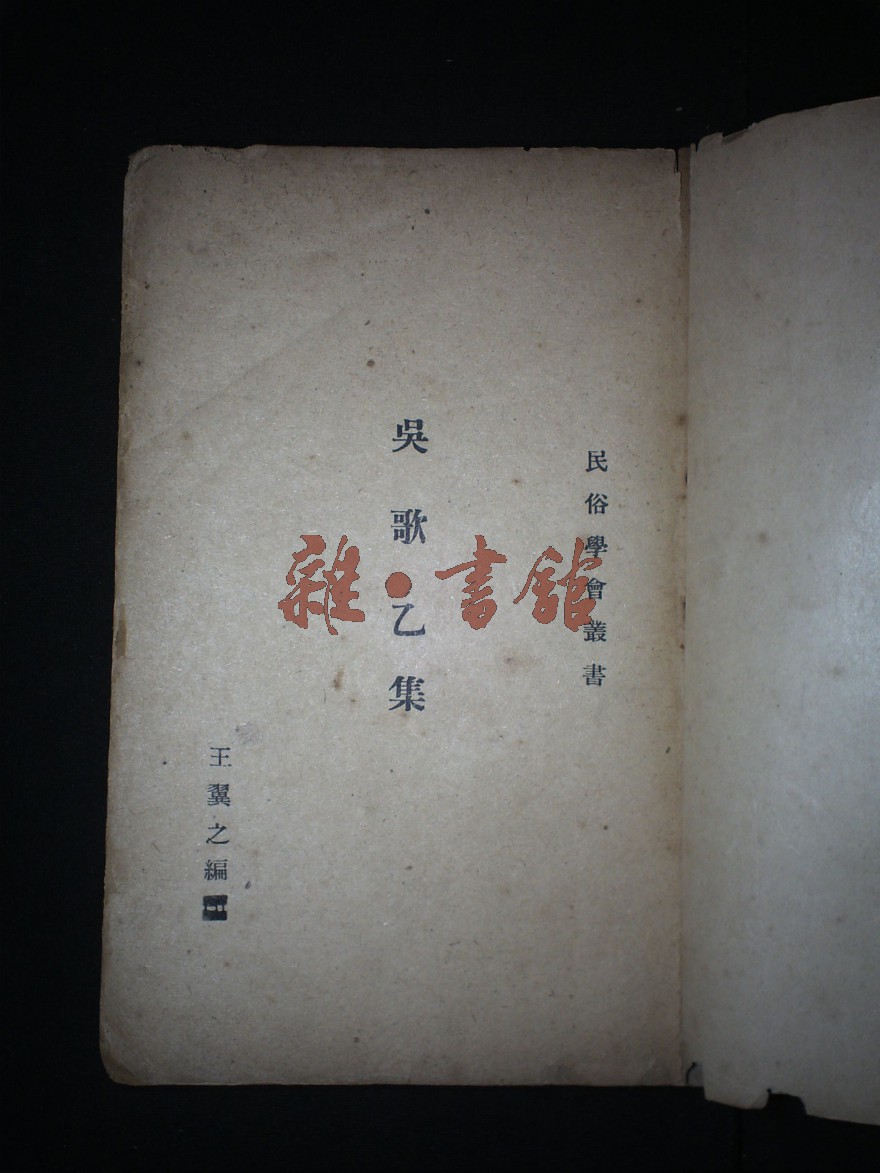 民俗學會叢書
吳歌乙集
王翼之編
雜·書館